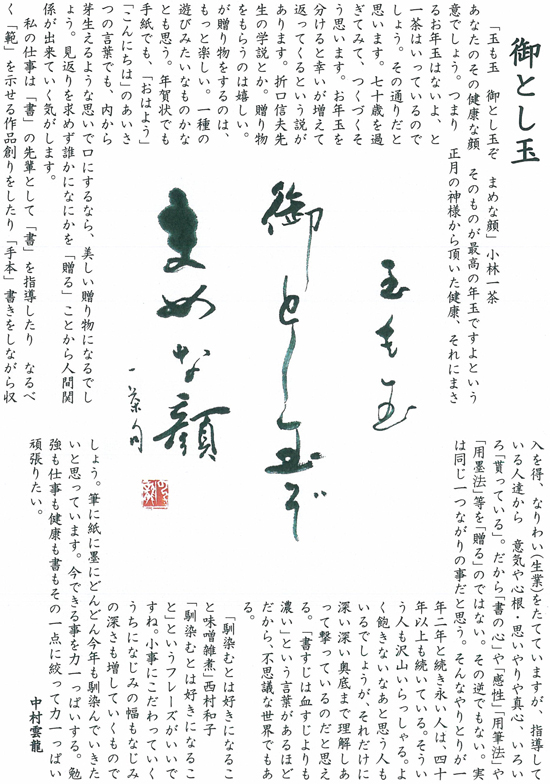 御とし玉
「玉も玉　御とし玉ぞ　まめな顔」小林一茶
あなたのその健康な顔　そのものが最高の年玉ですよという
意でしょう。つまり　正月の神様から頂いた健康、それにまさ
るお年玉はないよ、と
一茶はいっているので
しょう。その通りだと
思います。七十歳を過
ぎてみて、つくづくそ
う思います。お年玉を
分けると幸いが増えて
返ってくるという説が
あります。折口信夫先
生の学説とか。贈り物
をもらうのは嬉しい。
が贈り物をするのは、
もっと楽しい。一種の
遊びみたいなものかな
とも思う。年賀状でも
手紙でも、「おはよう」
「こんにちは」のあいさ
つの言葉でも、内から
芽生えるような思いで口にするなら、美しい贈り物になるでし
ょう。見返りを求めず誰かになにかを「贈る」ことから人間関
係が出来ていく気がします。
　私の仕事は「書」の先輩として「書」を指導したり　なるべ
く「範」を示せる作品創りをしたり「手本」書きをしながら収
玉も玉
御とし玉ぞ
まめな顔
一茶句
入を得、なりわい(生業)をたてていますが、指導して
いる人達から　意気や心根・思いやりや真心　いろい
ろ「貰っている」。だから「書の心」や「感性」「用筆法」や
「用墨法」等を「贈る」のではない。その逆でもない。実
は同じ一つながりの事だと思う。そんなやりとりが一
年二年と続き永い人は、四十
年以上も続いている。そうい
う人も沢山いらっしゃる。よ
く飽きないなあと思う人も
いるでしょうが、それだけに
深い深い奥底まで理解しあ
って繋っているのだと思え
る。「書すじは血すじよりも
濃い」という言葉があるほど
だから、不思議な世界でもあ
る。
　「馴染むとは好きになるこ
と味噌雑煮」西村和子
「馴染むとは好きになるこ
と」というフレーズがいいで
すね。小事にこだわっていく
うちになじみの幅もなじみ
の深さも増していくもので
しょう。筆に紙に墨にどんどん今年も馴染んでいきた
いと思っています。今できる事を力一っぱいする。勉
強も仕事も健康も書もその一点に絞って力一っぱい
頑張りたい。
中村雲龍